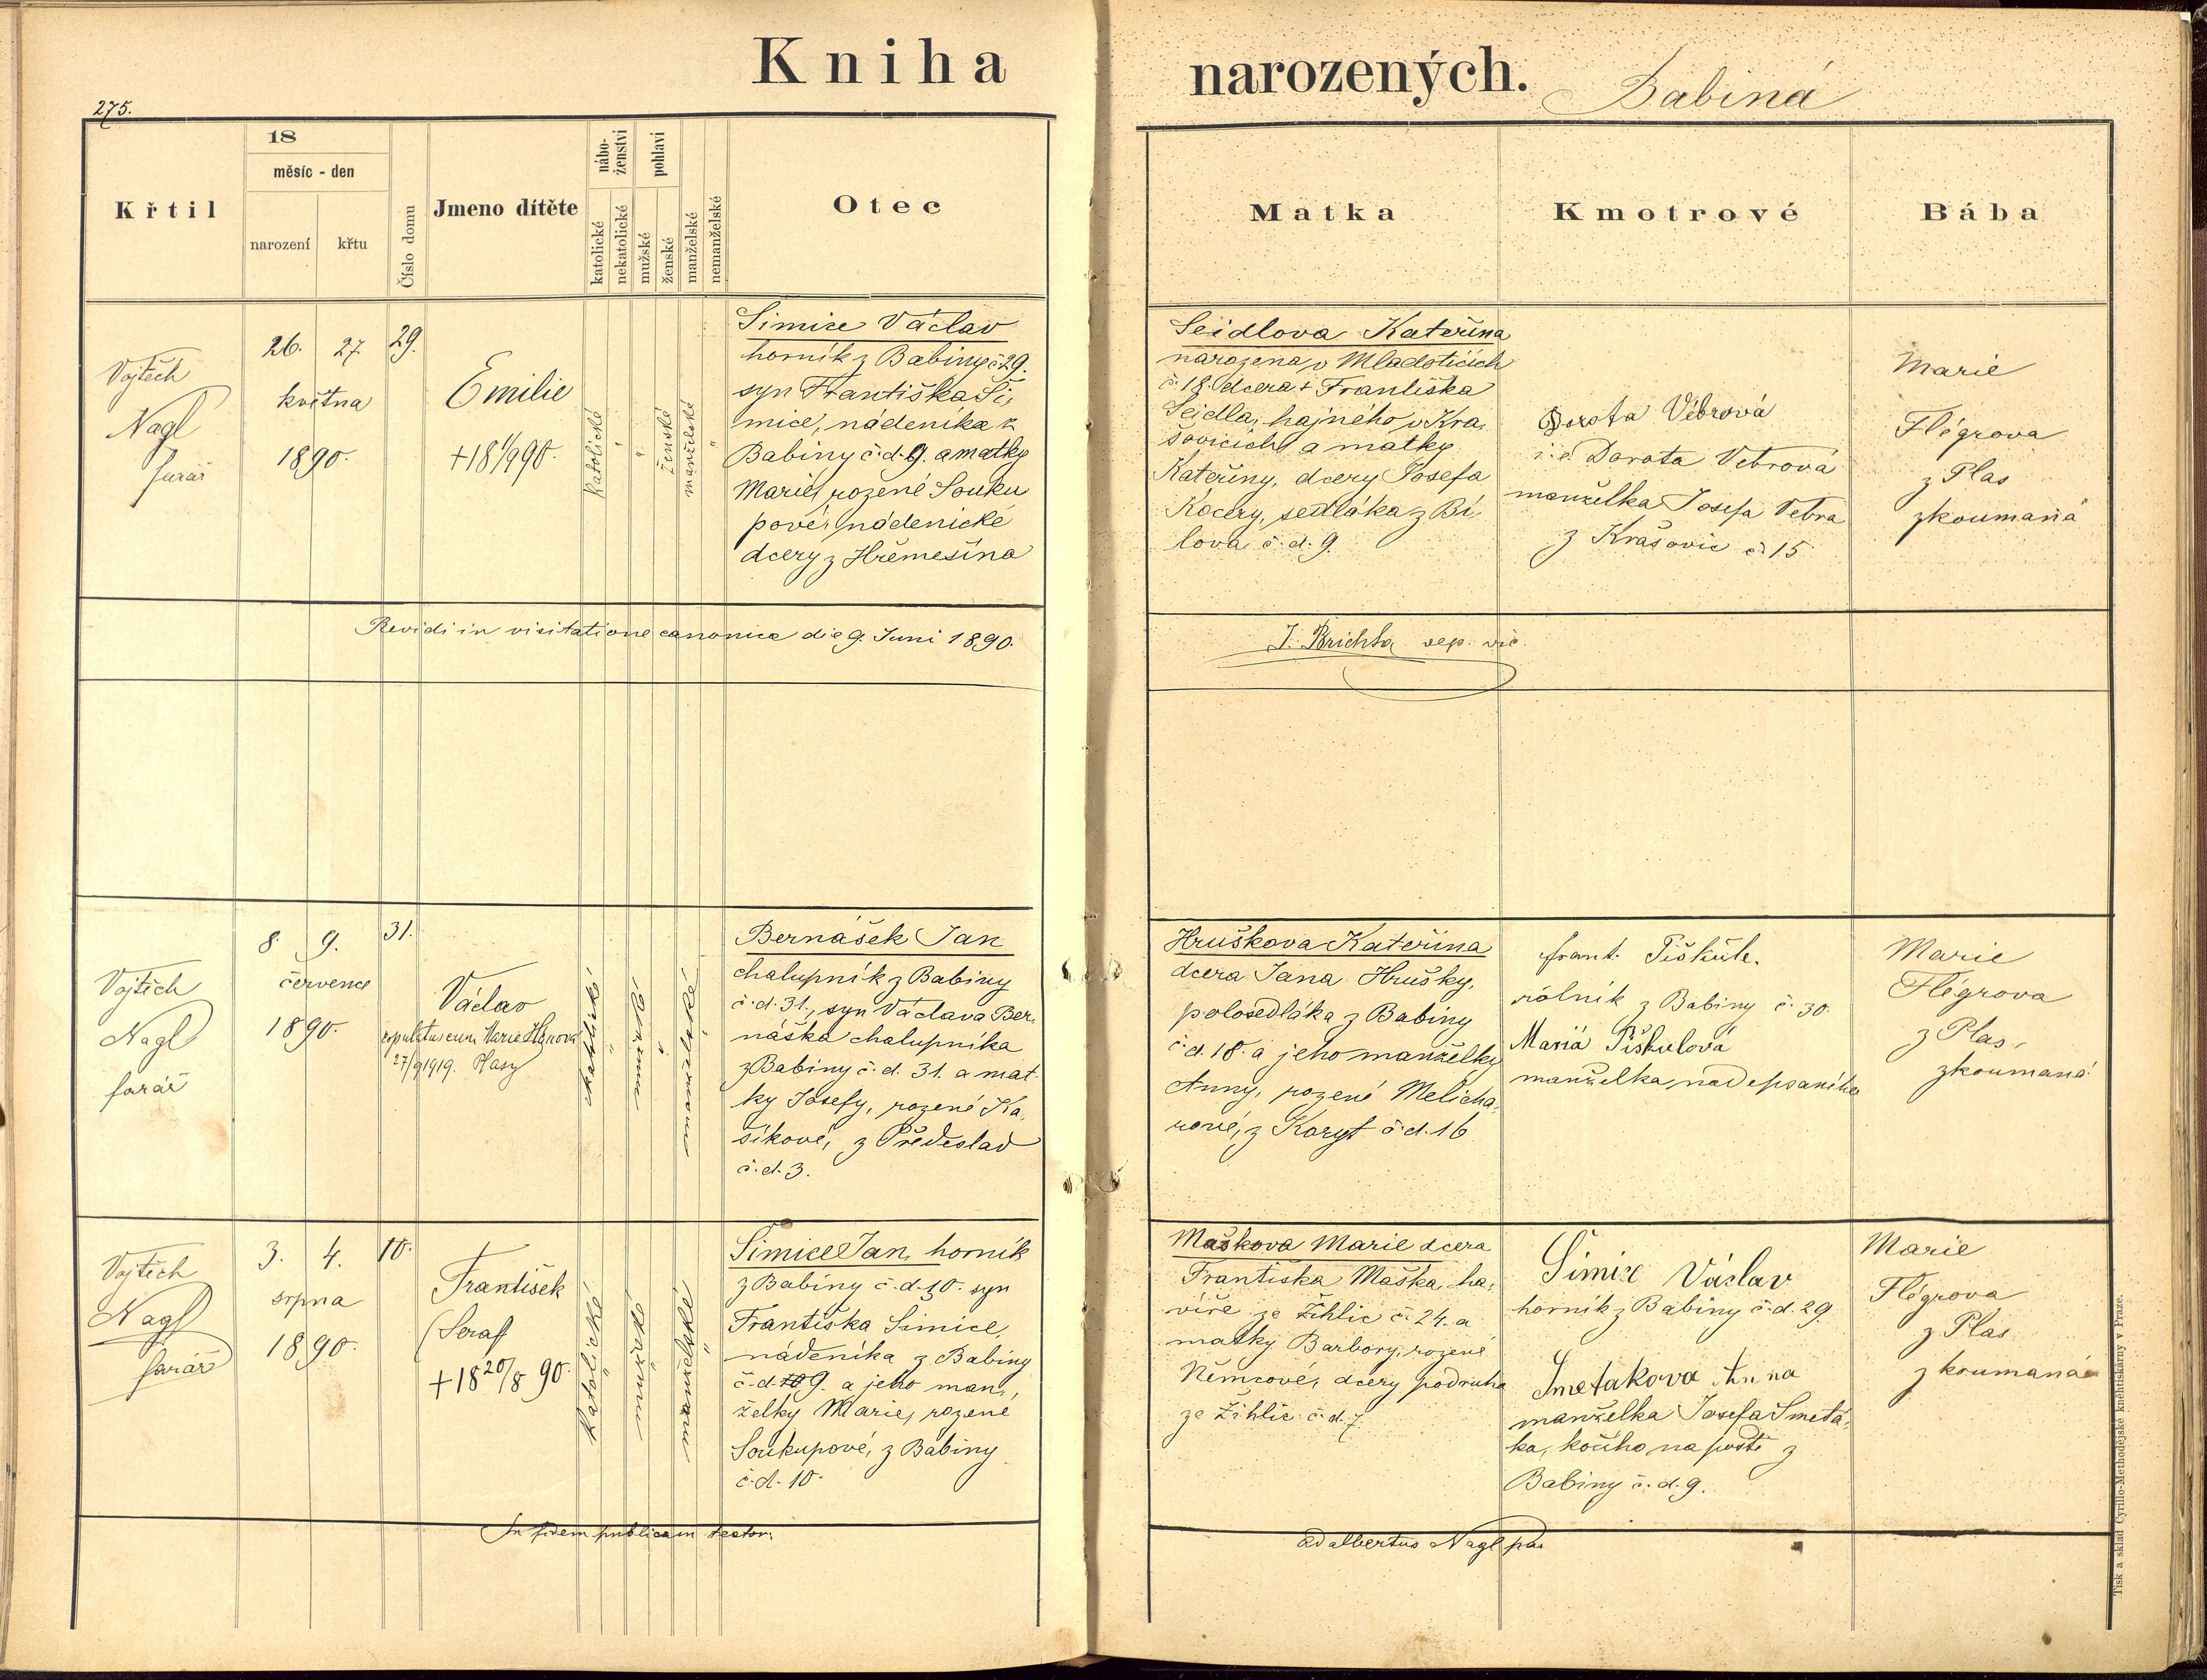 Kniha
narozených.
Babiná
275.
Křtil
18
měsíc - den
narození
křtu
Číslo domu
Jmeno dítěte
nábo-
ženství
katolické
nekatolické
pohlaví
mužské
ženské
manželské
nemanželské
Otec
Matka
Kmotrové
Bába
Vojtěch
Nagl
farář
26.
27.
května
1890.
29.
Emilie
+18 1/9 90.
Katolické
"
"
ženské
manželské
"
Simice Václav
horník z Babiny č 29.
syn Františka Ši,
mice, nádeníka z
Babiny č.d. 9. a matky
Marie, rozené Souku
pové, nádenické
dcery z Hřemešína
Seidlova Kateřina
narozena v Mladoticích
č. 18. dcera + Františka
Seidla, hajného v Kra,
šovicích a matky
Kateřiny, dcery Josefa
Kocery, sedláka z Bí,
lova č.d. 9.
Dorota Vébrová
i.e. Dorota Vebrová
manželka Josefa Vebra
z Krašovic č 15
Marie
Flégrova
z Plas
zkoumaná
Revidi in visitatione canonica die 9. Juni 1890.
J. Brichta
8.
9.
července
1890.
31.
Vojtěch
Nagl
farář
Václav
copulatus cum Marie
27/9 1919. Plasy
Katolické
"
manželské
Bernášek Jan
chalupník z Babiny
č.d. 31., syn Václava Ber,
náška chalupníka
z Babiny č.d. 31. a mat
ky Josefy, rozené Ka,
šíkové, z Předeslav
č.d. 3.
Hruškova Kateřina
dcera Jana Hrušky,
polosedláka z Babiny
č.d. 18. a jeho manželky
Anny, rozené Melicha,
rové, z Koryt č.d. 16
frant. Piškule.
rolník z Babiny č. 30.
Mariá Piškulová
manželka nadepsaného
Marie
Flégrova
z Plas.
zkoumaná
Vojtěch
Nagl
farář
3.
4.
srpna
1890.
10.
František
(Seraf
+18 20/8 90.
Katolické
"
manželské
"
Simice Jan, horník
z Babiny č.d. 10. syn
Františka Simice,
nádeníka z Babiny
č.d. 10 9. a jeho man,
želky Marie, rozené
Soukupové, z Babiny
č.d. 10.
Maškova Marie dcera
Františka Maška, ha,
víře ze Žihlic č. 24. a
matky Barbory, rozené
Němcové, dcery podruha
ze Žihlic č.d. 7.
Šimic Václav
horník z Babiny č.d. 29.
Smetakova Anna
manželka Josefa Smetá,
ka, kočího na poště z
Babiny č.d. 9.
Marie
Flégrova
z Plas
zkoumaná
In fidem publicam testor:
Adalbertus Nagl
Tisk a sklad Cyrillo-Methodějské kněhtiskárny v Praze.